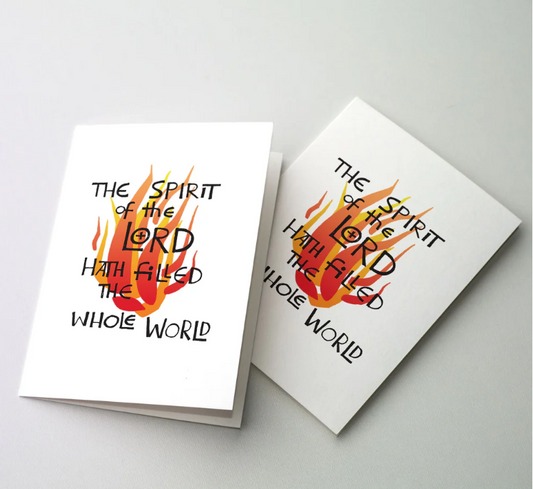 THE SPIRIT
of the
LORD
HATH FILLED
THE
WHOLE WORLD
THE SPIRIT
of the
LORD
HATH FILLED
THE
WHOLE WORLD